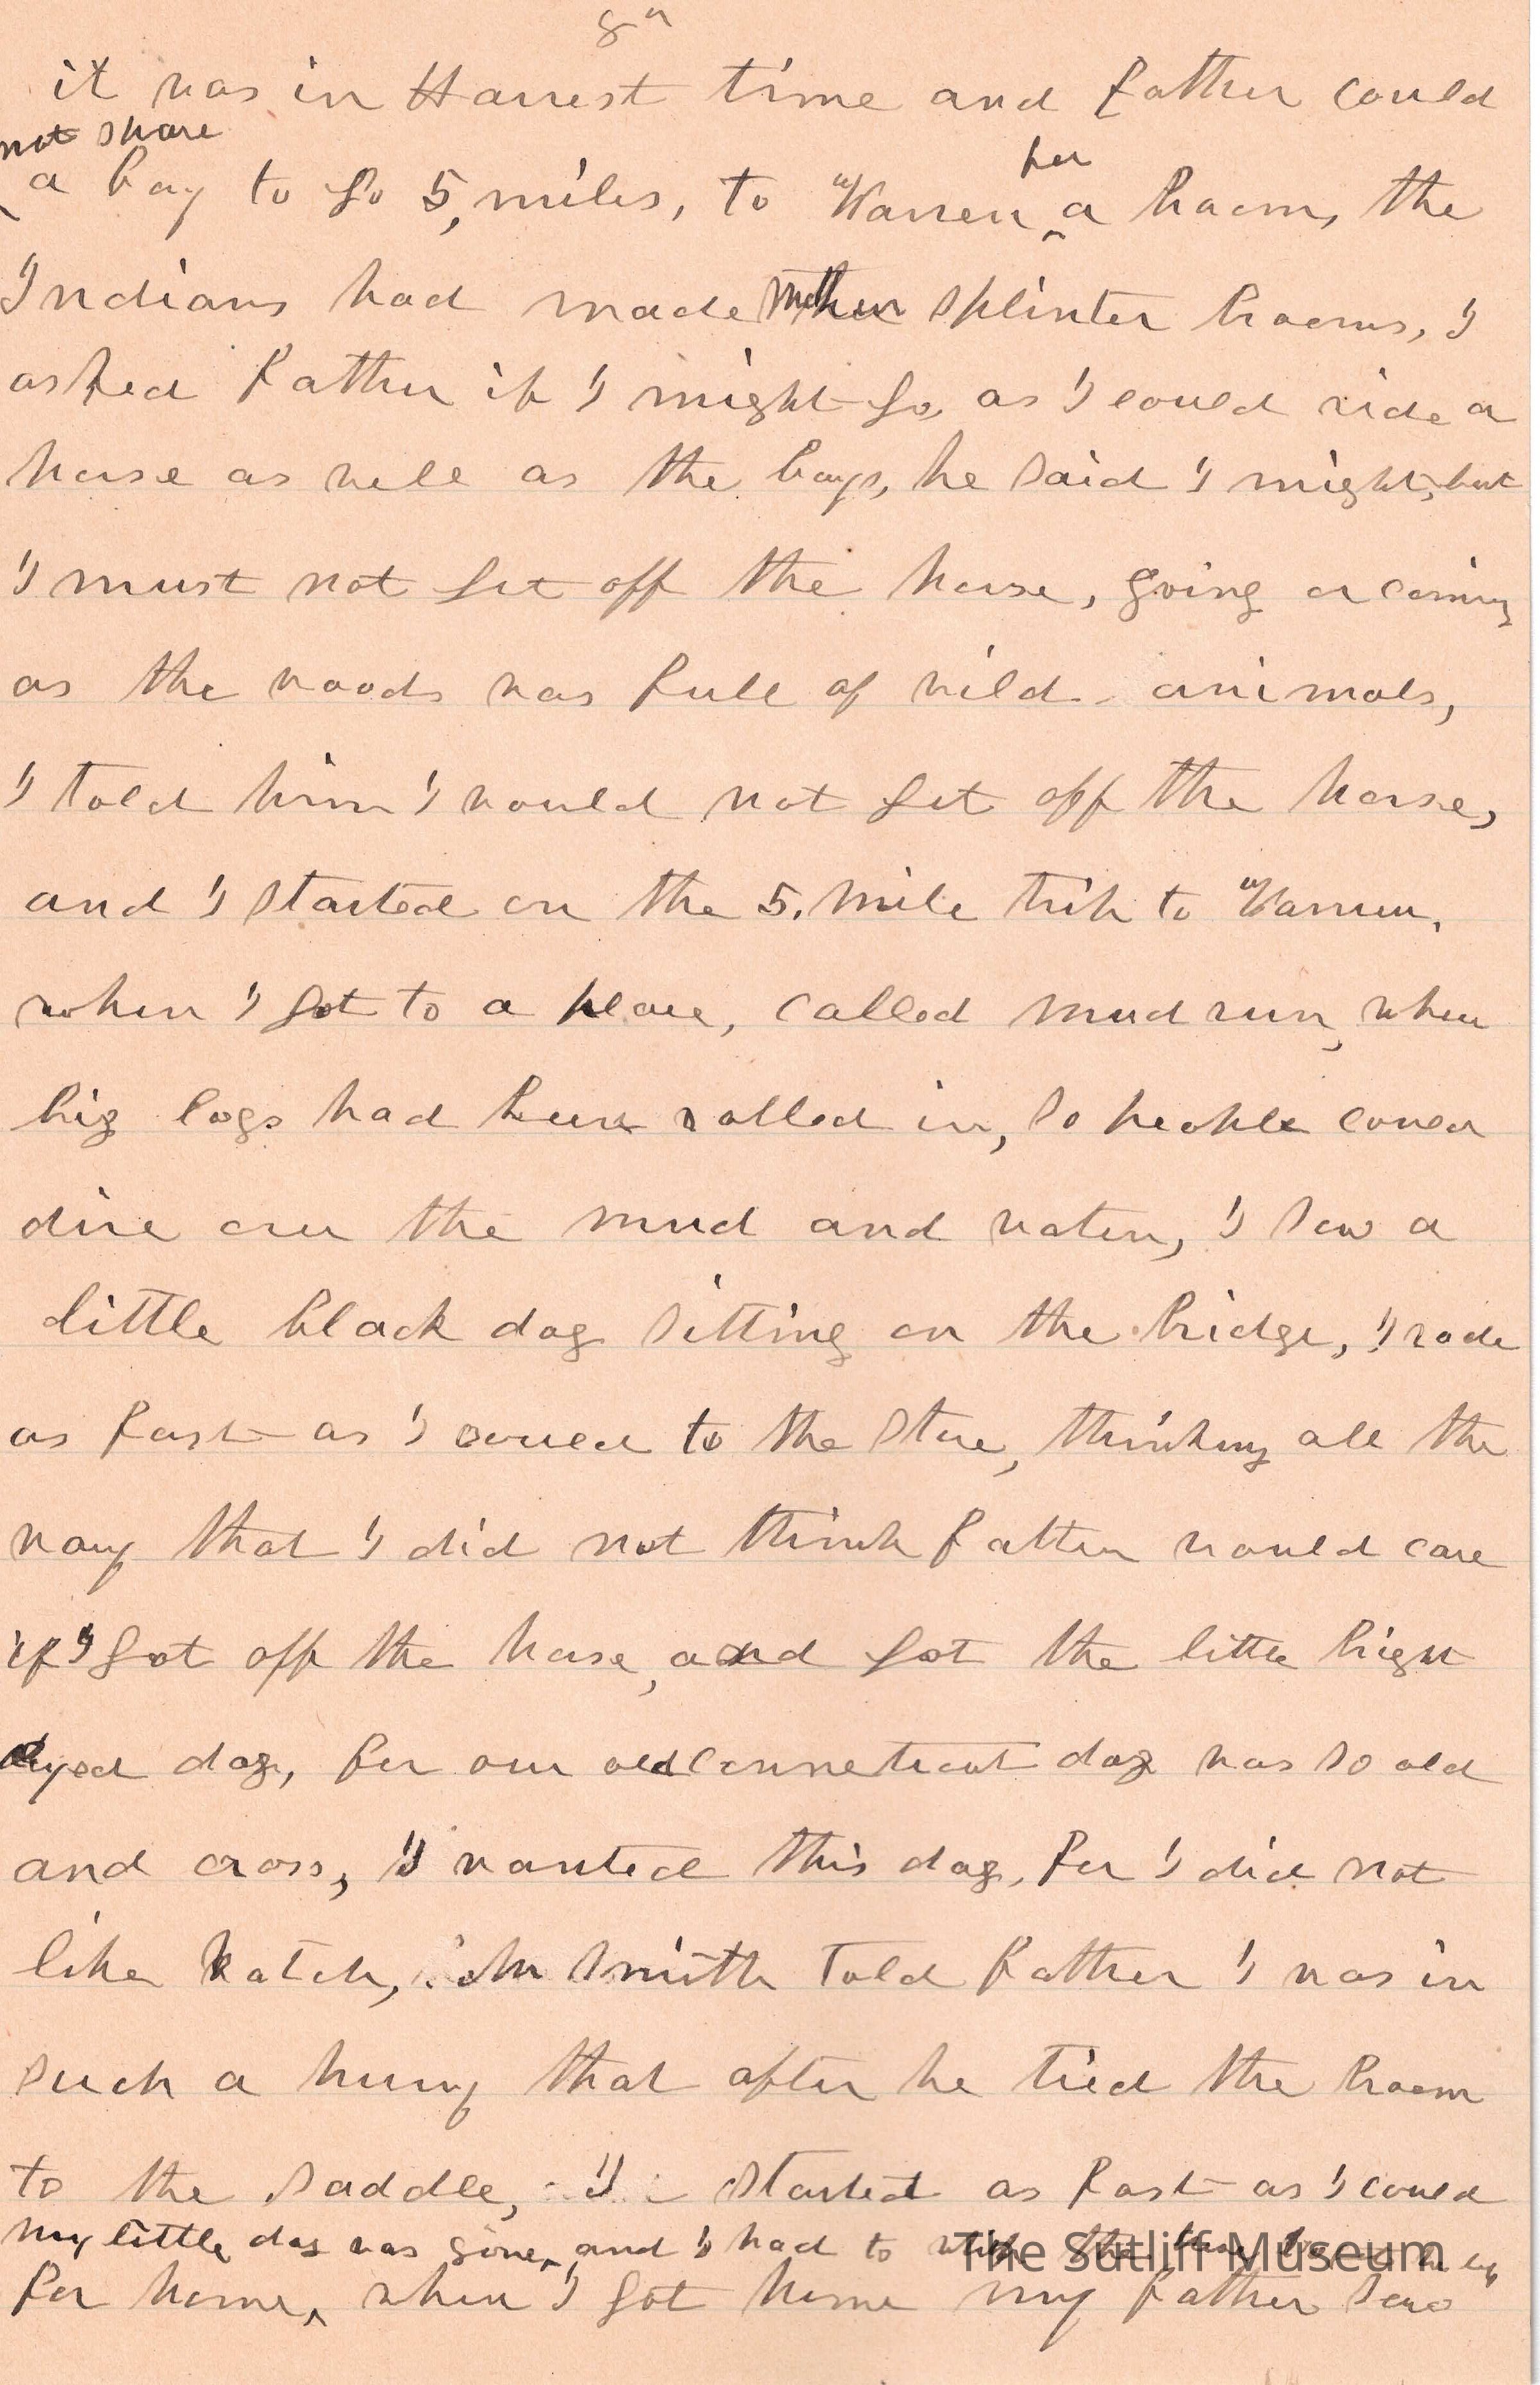 8"
it was in Harvest time and Father could
not spare
a boy to go 5, miles, to Warren a broom, the
for
Indians had made Mother splinter brooms, I
asked Father if I might go, as I could ride a
horse as well as the boys, he said I might, but
I must not get off the horse, going or coming
as the woods was full of wild animals,
I told him I would not get off the horse,
and I started on the 5. mile trip to Warren,
when I got to a place, called mud run, where
big logs had been rolled in, so people could
dive over the mud and water, I saw a
little black dog sitting on the bridge, I rode
as fast as I could to the store, thinking all the
way that I did not think Father would care
if I got off the horse, and got the little bright
eyed dog, for our old Conneticut dog was so old
and cross, I wanted this dog, for I did not
like Watch, Mr Smith told Father I was in
such a hurry that after he tied the broom
to the saddle, I started as fast as I could
my little dog was gone, and I had to the
for home, when I got home my Father saw
The Sutliff Museum